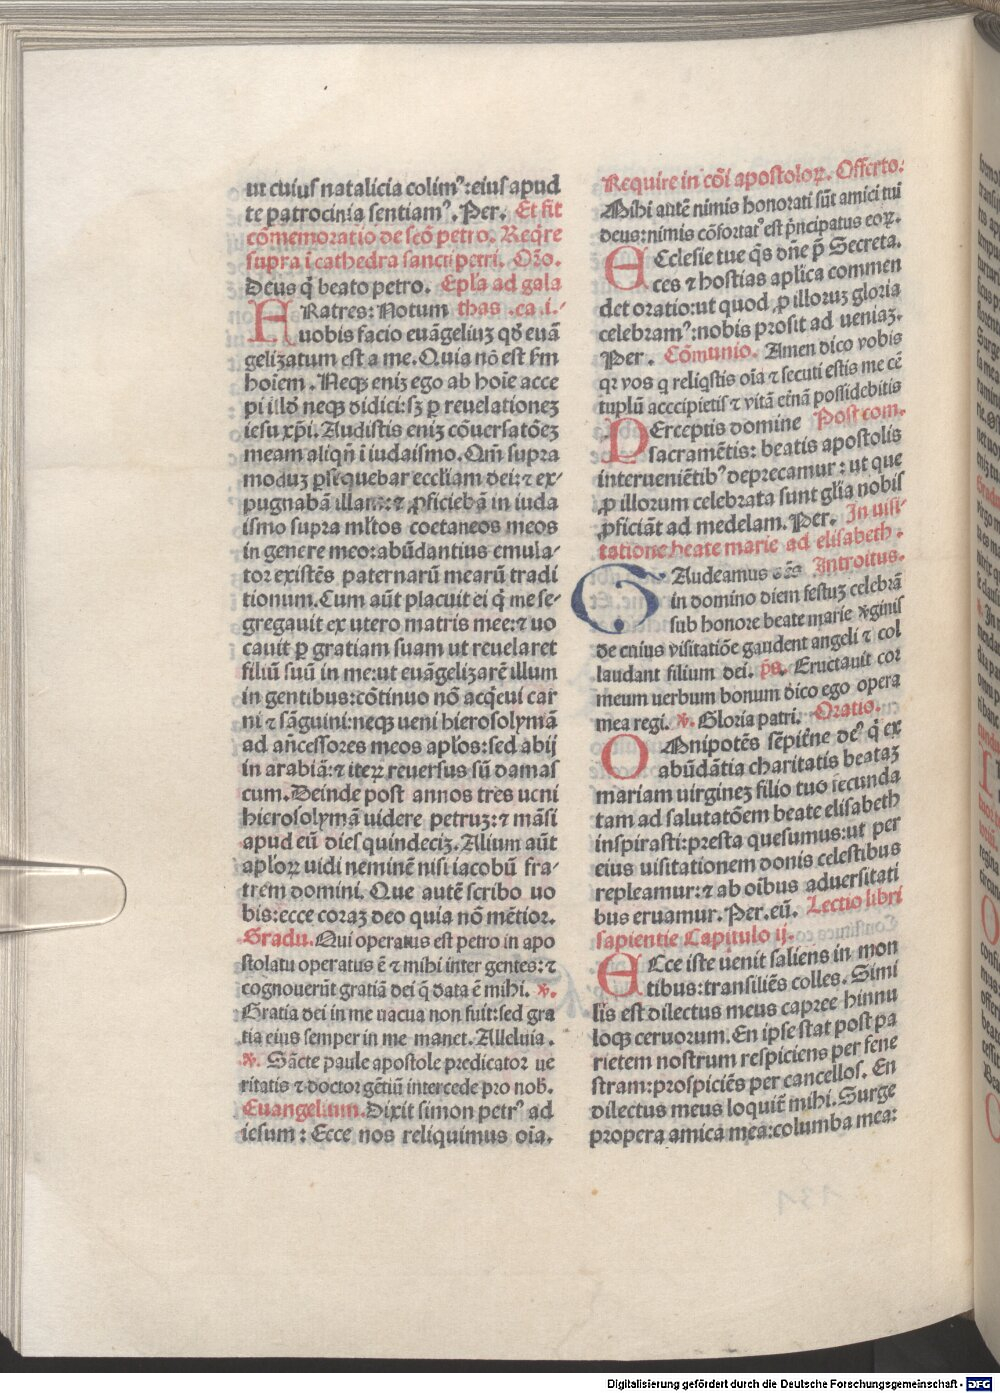 ut cuius natalicia colimꝰ: eius apud
te patrocinia sentiamꝰ. Per. Et fit
cōmemoratio de scō petro. Reqͥre
supra ī cathedra sancti petri. Oro.
Deus q̄ beato petro. Epl̄a ad gala
FRatres: Notum thas .ca .i.
vobis facio euāgeliuꝫ qd̄ euā
gelizatum est a me. Quia nō est ẜm
hoīem. Neqꝫ eniꝫ ego ab hoīe acce
pi illd̄ neqꝫ didici: sꝫ ꝑ reuelationeꝫ
iesu xp̄i. Audistis eniꝫ cōuersatōeꝫ
meam aliqn̄ ī iudaismo. Qm̄ supra
moduꝫ ꝑseq̄bar eccl̄iam dei: ⁊ ex-
pugnabā illam: ⁊ ꝓficiebā in iuda
ismo supra ml̄tos coetaneos meos
in genere meo: abūdantius emula-
tor existēs paternarū mearū tradi
tionum. Cum aūt placuit ei q̄ me se-
gregauit ex utero matris mee: ⁊ uo
cauit ꝑ gratiam suam ut reuelaret
filiū suū in me: ut euāgelizarē illum
in gentibus: cōtinuo nō acq̄eui car
ni ⁊ sāguini: neqꝫ ueni hierosolymā
ad an̄cessores meos apl̄os: sed abij
in arabiā: ⁊ iteꝝ reuersus sū damas
cum. Deinde post annos tres ueni
hierosolymā uidere petruꝫ: ⁊ māsi
apud eū dies quindeciꝫ. Alium aūt
apl̄oꝝ uidi neminē nisi iacobū fra-
trem domini. Que autē scribo uo
bis: ecce coraꝫ deo quia nō mētior.
Gradu. Qui operatus est petro in apo
stolatu operatus ē ⁊ mihi inter gentes: ⁊
cognouerūt gratiā dei q̄ data ē mihi. ℣.
Gratia dei in me uacua non fuit: sed gra
tia eius semper in me manet. Alleluia.
℣. Sācte paule apostole predicator ue
ritatis ⁊ doctor gētiū intercede pro nob̄.
Euangelium. Dixit simon petrꝰ ad
iesum: Ecce nos reliquimus oīa.
Require in cōi apostoloꝝ. Offerto.
Mihi autē nimis honorati sūt amici tui
deus: nimis cōfortatꝰ est pͥncipatus eoꝝ.
ECclesie tue q̄s dn̄e p̄ Secreta.
ces ⁊ hostias aplīca commen
det oratio: ut quod ꝓ illoruꝫ gloria
celebramꝰ: nobis prosit ad ueniaꝫ.
Per. Cōmunio. Amen dico vobis
qꝛ vos q reliqͥstis oīa ⁊ secuti estis me cē
tuplū acccipietis ⁊ vitā et̄nā possidebitis
PErceptis domine Post com.
sacramētis: beatis apostolis
interueniētibꝰ deprecamur: ut que
ꝓ illorum celebrata sunt gl̄ia nobis
ꝓficiāt ad medelam. Per. In uisi-
tatione beate marie ad elisabeth.
GAudeamus oēs Introitus.
in domino diem festuꝫ celebrā
sub honore beate marie v̓ginis
de cuius visitatiōe gaudent angeli ⁊ col
laudant filium dei. p̄s. Eructauit cor
meum uerbum bonum dico ego opera
mea regi. ℣. Gloria patri. Oratio.
OMnipotēs sēpit̄ne deꝰ q̄ ex
abūdātia charitatis beataꝫ
mariam uirgineꝫ filio tuo fecunda
tam ad salutatōem beate elisabeth
inspirasti: presta quesumus: ut per
eius uisitationem donis celestibus
repleamur: ⁊ ab oībus aduersitati
bus eruamur. Per. eū. Lectio libri
sapientie Capitulo ij.
ECce iste uenit saliens in mon
tibus: transiliēs colles. Simi
lis est dilectus meus capree hinnu
loqꝫ ceruorum. En ipse stat post pa
rietem nostrum respiciens per fene
stram: prospiciēs per cancellos. En
dilectus meus loquit̄ mihi. Surge
propera amica mea: columba mea:
131
Digitalisierung gefördert durch die Deutsche Forschungsgemeinschaft - DFG